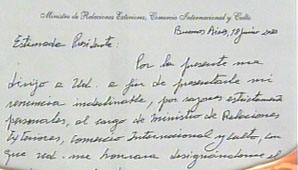 Ministro de Relaciones Exteriores, Comercio Internacional y Culto
Buenos Aires, junio
Estimado Presidente:
Por la presente me
dirijo a Ud. a fin de presentarle mi
renuncia indeclinable, por razones estrictamente
personales, al cargo de Ministro de Relaciones
Exteriores, Comercio Internacional y Culto, con
que Ud. me honrara designándome el